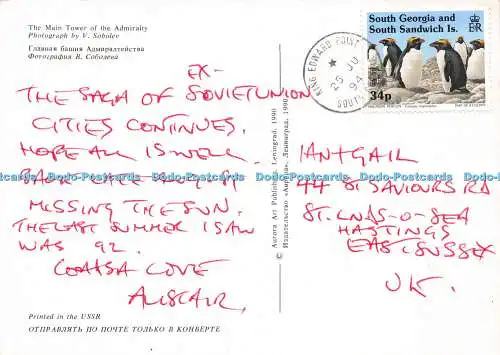 The Main Tower of the Admiralty
Photograph by V. Sobolev
Главная башня Адмиралтейства
Фотография В. Соболева
EX-
THE SAGA OF SOVIET UNION
CITIES CONTINUES.
HOPE ALL IS WELL.
BACK
MISSING THE SUN.
THE LAST SUMMER I SAW
WAS 92.
LOVE
ALISTAIR.
Printed in the USSR
ОТПРАВЛЯТЬ ПО ПОЧТЕ ТОЛЬКО В КОНВЕРТЕ
Aurora Art Publishers, Leningrad, 1990
© Издательство «Аврора», Ленинград, 1990
KING EDWARD POINT
25 JU
94
SOUTH
South Georgia and
South Sandwich Is.
ER
34p
IAN+GAIL
44 ST SAVIOURS RD
ST. LNDS-O-SEA
HASTINGS
EAST SUSSEX
UK.
Dodo-Postcards Dodo-Postcards Dodo-Postcards Dodo-Postcards Dodo-Postcards